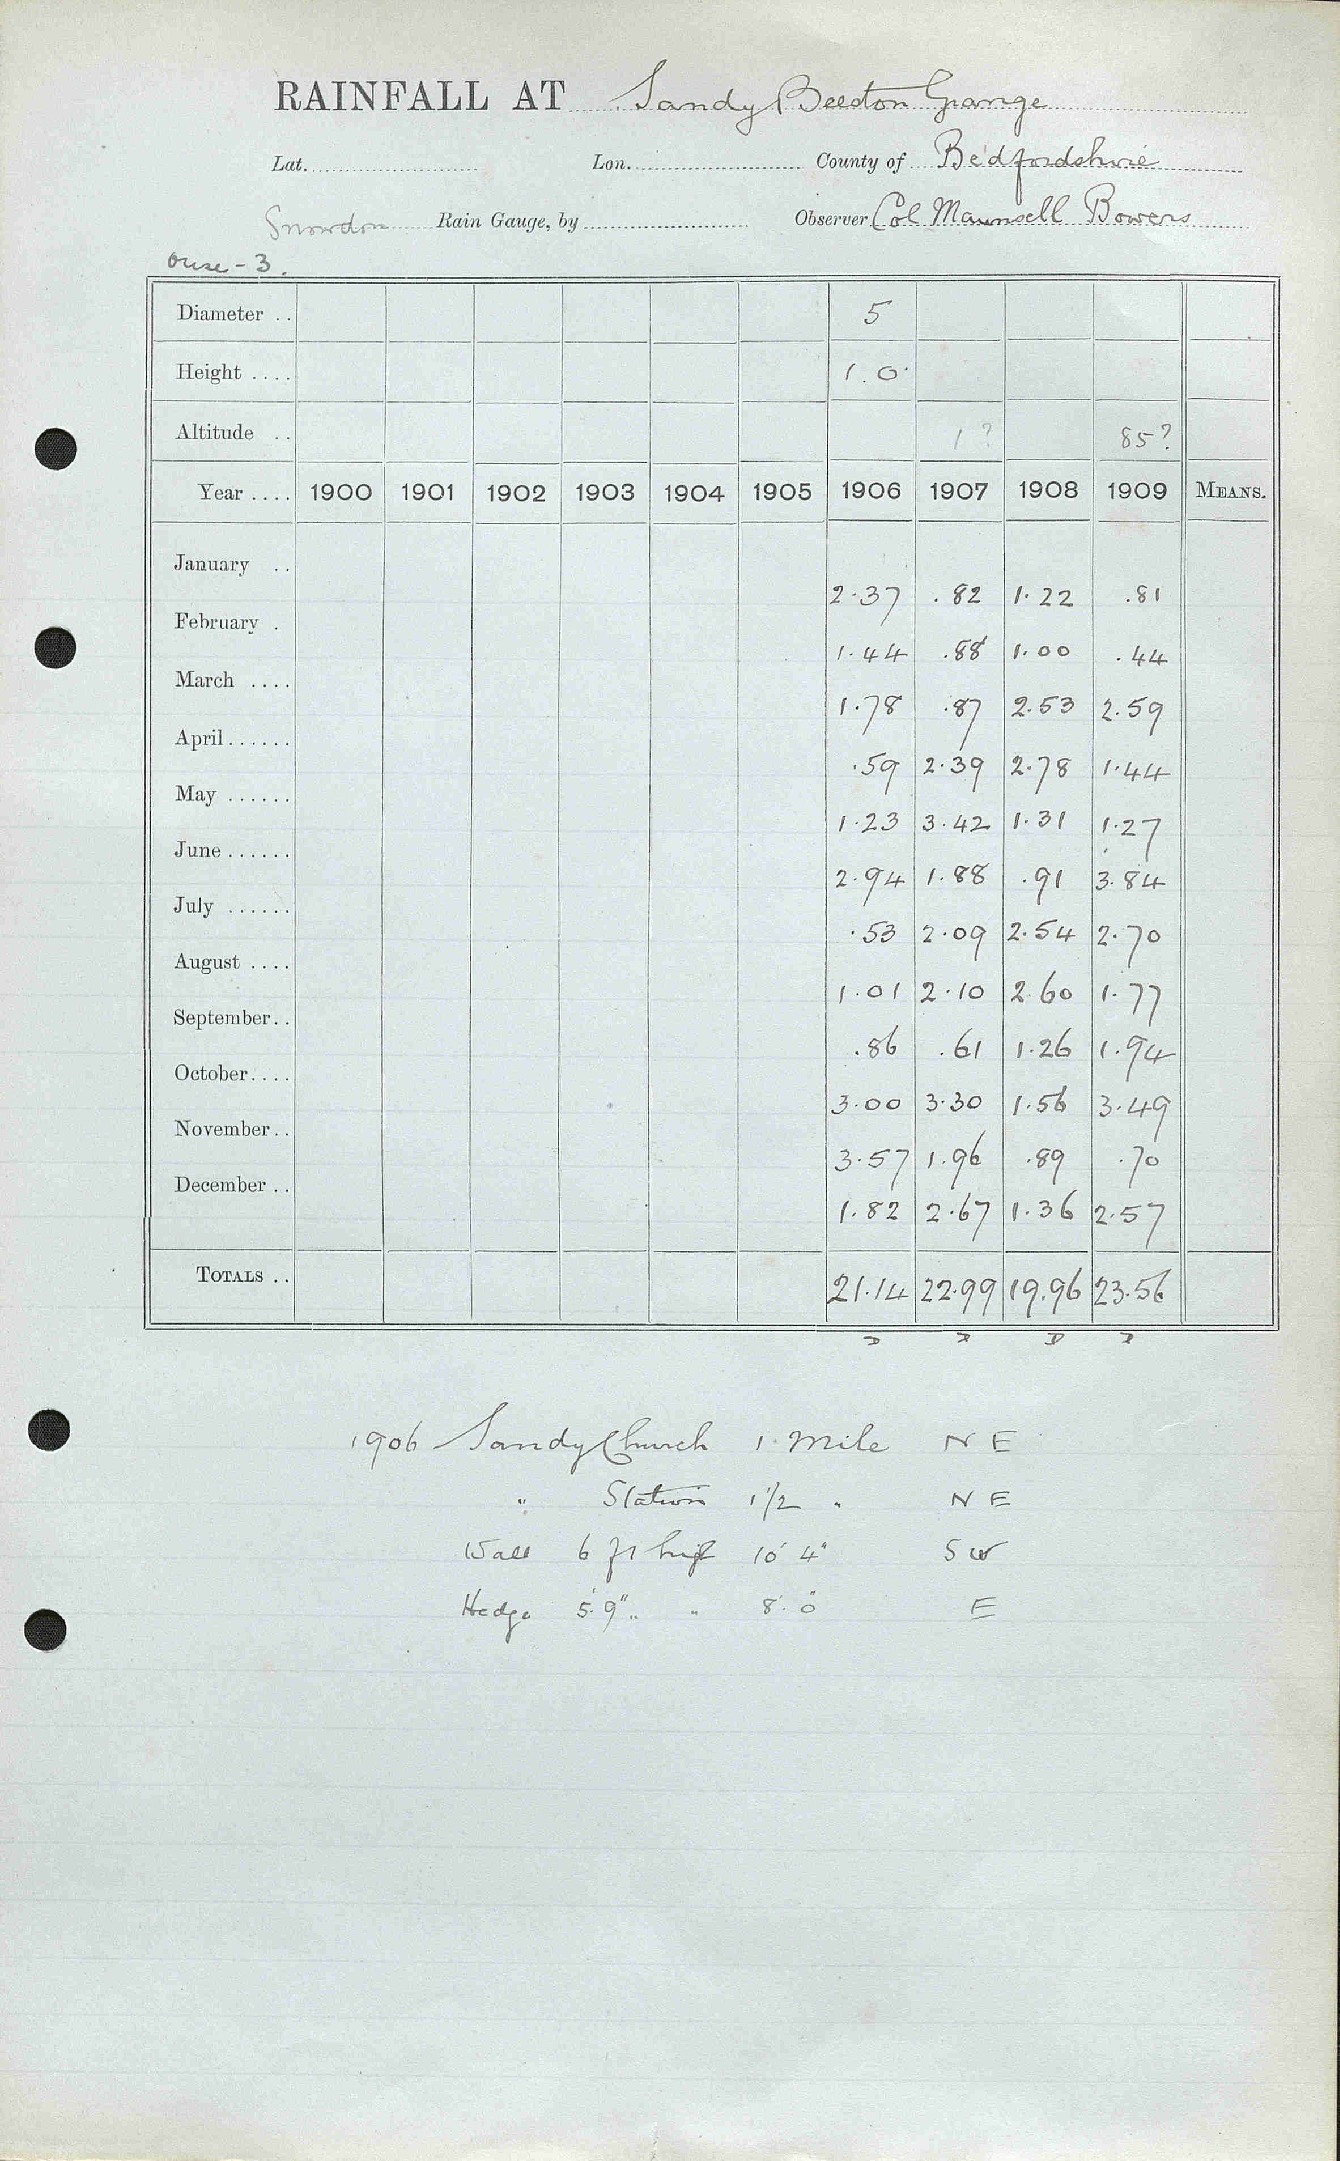 RAINFALL AT Sandy Beeston Grange
Lat. Lon. County of Bedfordshire
Snowdon Rain Gauge, by Observer Col Maunsell Bowers
Ouse - 3.
Diameter .. 5
Height .... 1.0
Altitude .. 1? 85?
Year .... 1900 1901 1902 1903 1904 1905 1906 1907 1908 1909 MEANS.
January .. 2.37 .82 1.22 .81
February . 1.44 .88 1.00 .44
March .... 1.78 .87 2.53 2.59
April ...... .59 2.39 2.78 1.44
May ...... 1.23 3.42 1.31 1.27
June ...... 2.94 1.88 .91 3.84
July ...... .53 2.09 2.54 2.70
August .... 1.01 2.10 2.60 1.77
September.. .86 .61 1.26 1.94
October.... 3.00 3.30 1.56 3.49
November.. 3.57 1.96 .89 .70
December .. 1.82 2.67 1.36 2.57
TOTALS .. 21.14 22.99 19.96 23.56
D D D D
1906 Sandy Church 1 Mile NE
" Station 1 1/2 " NE
Wall 6 ft high 10' 4" SW
Hedge 5' 9" " 8' 0" E